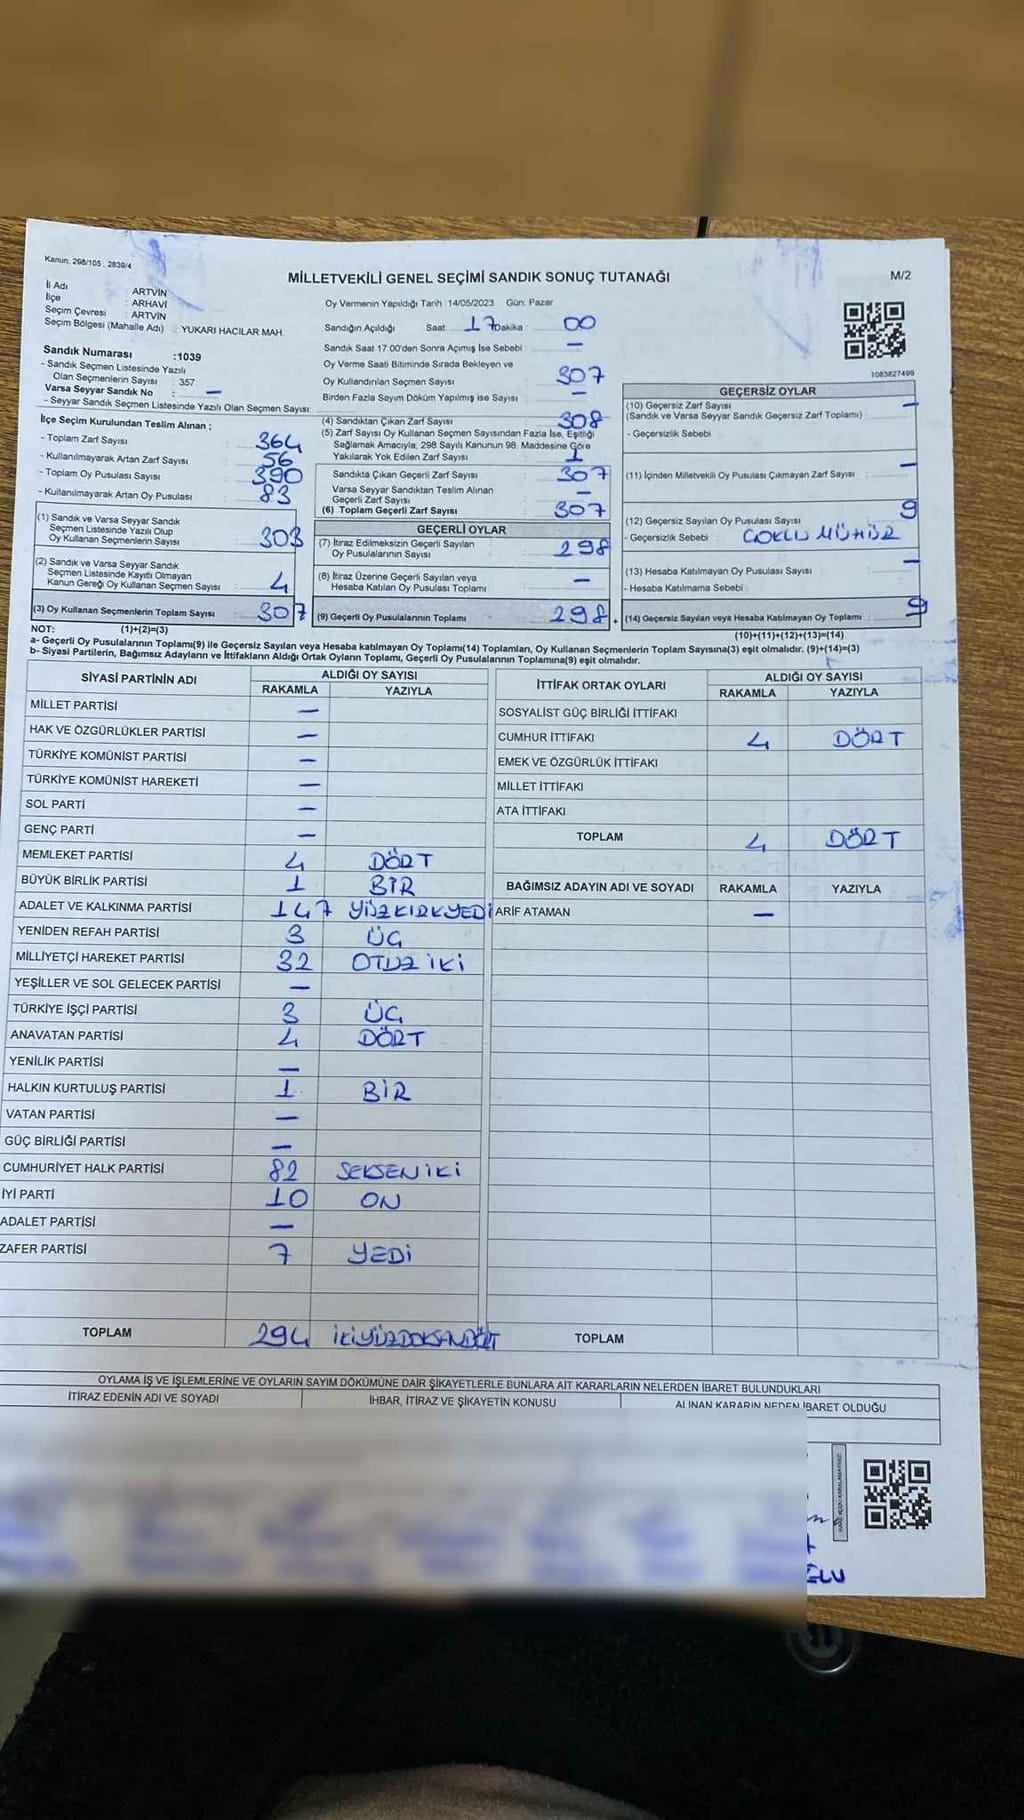 Kanun: 298/105 , 2839/4
MİLLETVEKİLİ GENEL SEÇİMİ SANDIK SONUÇ TUTANAĞI
M/2
İl Adı : ARTVİN
İlçe : ARHAVİ
Seçim Çevresi : ARTVİN
Seçim Bölgesi (Mahalle Adı) : YUKARI HACILAR MAH.
Oy Vermenin Yapıldığı Tarih : 14/05/2023 Gün: Pazar
Sandığın Açıldığı Saat: 17 Dakika 00
Sandık Saat 17:00'den Sonra Açmış İse Sebebi : —
Oy Verme Saati Bitiminde Sırada Bekleyen ve
Oy Kullandırılan Seçmen Sayısı : 307
Birden Fazla Sayım Döküm Yapılmış ise Sayısı : —
1083827499
Sandık Numarası :1039
- Sandık Seçmen Listesinde Yazılı
Olan Seçmenlerin Sayısı : 357
Varsa Seyyar Sandık No : —
- Seyyar Sandık Seçmen Listesinde Yazılı Olan Seçmen Sayısı:
İlçe Seçim Kurulundan Teslim Alınan ;
- Toplam Zarf Sayısı : 364
- Kullanılmayarak Artan Zarf Sayısı : 56
- Toplam Oy Pusulası Sayısı : 390
- Kullanılmayarak Artan Oy Pusulası : 83
(1) Sandık ve Varsa Seyyar Sandık
Seçmen Listesinde Yazılı Olup
Oy Kullanan Seçmenlerin Sayısı : 303
(2) Sandık ve Varsa Seyyar Sandık
Seçmen Listesinde Kayıtlı Olmayan
Kanun Gereği Oy Kullanan Seçmen Sayısı : 4
(3) Oy Kullanan Seçmenlerin Toplam Sayısı : 307
(4) Sandıktan Çıkan Zarf Sayısı : 308
(5) Zarf Sayısı Oy Kullanan Seçmen Sayısından Fazla İse, Eşitliği
Sağlamak Amacıyla, 298 Sayılı Kanunun 98. Maddesine Göre
Yakılarak Yok Edilen Zarf Sayısı : 1
Sandıkta Çıkan Geçerli Zarf Sayısı : 307
Varsa Seyyar Sandıktan Teslim Alınan
Geçerli Zarf Sayısı : —
(6) Toplam Geçerli Zarf Sayısı : 307
GEÇERLİ OYLAR
(7) İtiraz Edilmeksizin Geçerli Sayılan
Oy Pusulalarının Sayısı : 298
(8) İtiraz Üzerine Geçerli Sayılan veya
Hesaba Katılan Oy Pusulası Toplamı : —
(9) Geçerli Oy Pusulalarının Toplamı : 298 +
GEÇERSİZ OYLAR
(10) Geçersiz Zarf Sayısı : —
(Sandık ve Varsa Seyyar Sandık Geçersiz Zarf Toplamı)
- Geçersizlik Sebebi :
(11) İçinden Milletvekili Oy Pusulası Çıkmayan Zarf Sayısı : —
(12) Geçersiz Sayılan Oy Pusulası Sayısı : 9
- Geçersizlik Sebebi : ÇOKLU MÜHÜR
(13) Hesaba Katılmayan Oy Pusulası Sayısı : —
- Hesaba Katılmama Sebebi :
(14) Geçersiz Sayılan veya Hesaba Katılmayan Oy Toplamı : 9
NOT: (1)+(2)=(3) (10)+(11)+(12)+(13)=(14)
a- Geçerli Oy Pusulalarının Toplamı(9) ile Geçersiz Sayılan veya Hesaba katılmayan Oy Toplamı(14) Toplamları, Oy Kullanan Seçmenlerin Toplam Sayısına(3) eşit olmalıdır. (9)+(14)=(3)
b- Siyasi Partilerin, Bağımsız Adayların ve İttifakların Aldığı Ortak Oyların Toplamı, Geçerli Oy Pusulalarının Toplamına(9) eşit olmalıdır.
SİYASİ PARTİNİN ADI ALDIĞI OY SAYISI
RAKAMLA YAZIYLA
MİLLET PARTİSİ —
HAK VE ÖZGÜRLÜKLER PARTİSİ —
TÜRKİYE KOMÜNİST PARTİSİ —
TÜRKİYE KOMÜNİST HAREKETİ —
SOL PARTİ —
GENÇ PARTİ —
MEMLEKET PARTİSİ 4 DÖRT
BÜYÜK BİRLİK PARTİSİ 1 BİR
ADALET VE KALKINMA PARTİSİ 147 YÜZKIRKYEDİ
YENİDEN REFAH PARTİSİ 3 ÜÇ
MİLLİYETÇİ HAREKET PARTİSİ 32 OTUZ İKİ
YEŞİLLER VE SOL GELECEK PARTİSİ —
TÜRKİYE İŞÇİ PARTİSİ 3 ÜÇ
ANAVATAN PARTİSİ 4 DÖRT
YENİLİK PARTİSİ —
HALKIN KURTULUŞ PARTİSİ 1 BİR
VATAN PARTİSİ —
GÜÇ BİRLİĞİ PARTİSİ —
CUMHURİYET HALK PARTİSİ 82 SEKSEN İKİ
İYİ PARTİ 10 ON
ADALET PARTİSİ —
ZAFER PARTİSİ 7 YEDİ
TOPLAM 294 İKİYÜZDOKSANDÖRT
İTTİFAK ORTAK OYLARI ALDIĞI OY SAYISI
RAKAMLA YAZIYLA
SOSYALİST GÜÇ BİRLİĞİ İTTİFAKI
CUMHUR İTTİFAKI 4 DÖRT
EMEK VE ÖZGÜRLÜK İTTİFAKI
MİLLET İTTİFAKI
ATA İTTİFAKI
TOPLAM 4 DÖRT
BAĞIMSIZ ADAYIN ADI VE SOYADI RAKAMLA YAZIYLA
ARİF ATAMAN —
TOPLAM
OYLAMA İŞ VE İŞLEMLERİNE VE OYLARIN SAYIM DÖKÜMÜNE DAİR ŞİKAYETLERLE BUNLARA AİT KARARLARIN NELERDEN İBARET BULUNDUKLARI
İTİRAZ EDENİN ADI VE SOYADI İHBAR, İTİRAZ VE ŞİKAYETİN KONUSU ALINAN KARARIN NEDEN İBARET OLDUĞU